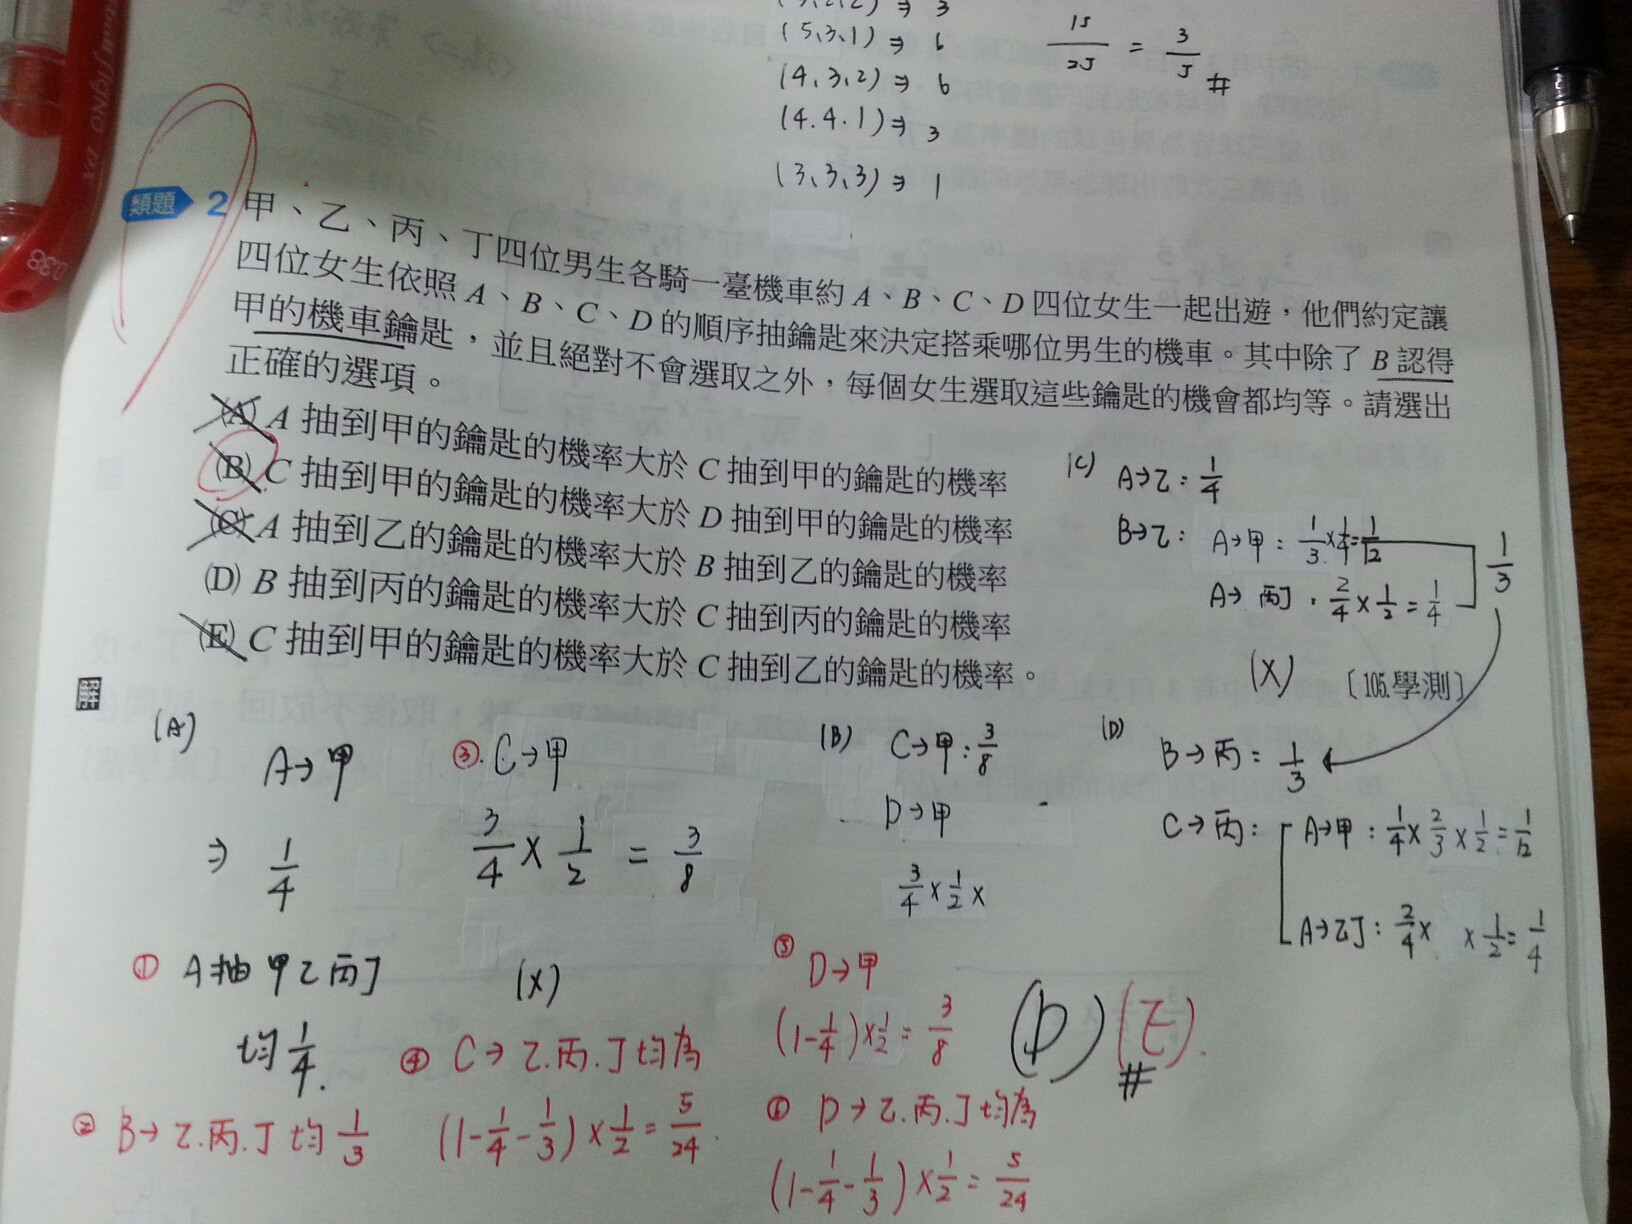 (5,3,1) ⇒ 6
(4,3,2) ⇒ 6
(4.4.1) ⇒ 3
(3,3,3) ⇒ 1
15/25 = 3/5 #
類題 2 甲、乙、丙、丁四位男生各騎一臺機車約 A、B、C、D 四位女生一起出遊,他們約定讓
四位女生依照 A、B、C、D 的順序抽鑰匙來決定搭乘哪位男生的機車。其中除了 B 認得
甲的機車鑰匙,並且絕對不會選取之外,每個女生選取這些鑰匙的機會都均等。請選出
正確的選項。
(A) A 抽到甲的鑰匙的機率大於 C 抽到甲的鑰匙的機率
(B) C 抽到甲的鑰匙的機率大於 D 抽到甲的鑰匙的機率
(C) A 抽到乙的鑰匙的機率大於 B 抽到乙的鑰匙的機率
(D) B 抽到丙的鑰匙的機率大於 C 抽到丙的鑰匙的機率
(E) C 抽到甲的鑰匙的機率大於 C 抽到乙的鑰匙的機率。
〔105.學測〕
(C) A→乙: 1/4
B→乙: A→甲: 1/3 × 1/4 = 1/12
A→丙丁: 2/4 × 1/2 = 1/4
1/3
(X)
解
(A)
A→甲
⇒ 1/4
③. C→甲
3/4 × 1/2 = 3/8
(X)
(B) C→甲: 3/8
D→甲
3/4 × 1/2 ×
(D) B→丙 = 1/3
C→丙: A→甲: 1/4 × 2/3 × 1/2 = 1/12
A→乙丁: 2/4 × × 1/2 = 1/4
① A抽甲乙丙丁
均 1/4.
② B→乙.丙.丁均 1/3
④ C→乙.丙.丁均為
(1-1/4-1/3) × 1/2 = 5/24.
⑤ D→甲
(1-1/4) × 1/2 = 3/8
⑥ D→乙.丙.丁均為
(1-1/4-1/3) × 1/2 = 5/24
(D) (E).
#